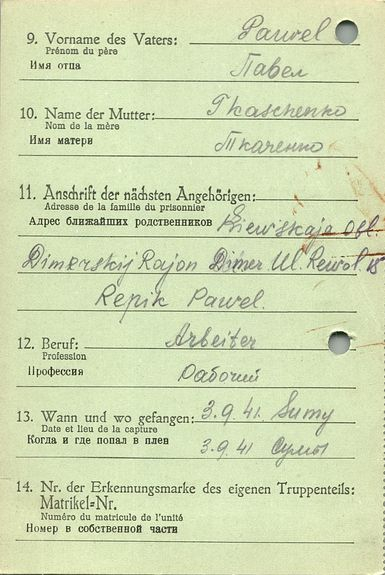 9. Vorname des Vaters: Pawel
Prénom du père
Имя отца Павел
10. Name der Mutter: Tkaschenko
Nom de la mère
Имя матери Ткаченко
11. Anschrift der nächsten Angehörigen:
Adresse de la famille du prisonnier
Адрес ближайших родственников Kiewskaja Obl.
Dimerskij Rajon Dimer Ul. Rewol. 18
Repik Pawel.
12. Beruf: Arbeiter
Profession
Профессия Рабочий
13. Wann und wo gefangen: 3.9.41. Sumy
Date et lieu de la capture
Когда и где попал в плен 3.9.41 Сумы
14. Nr. der Erkennungsmarke des eigenen Truppenteils:
Matrikel=Nr.
Numéro du matricule de l'unité
Номер в собственной части